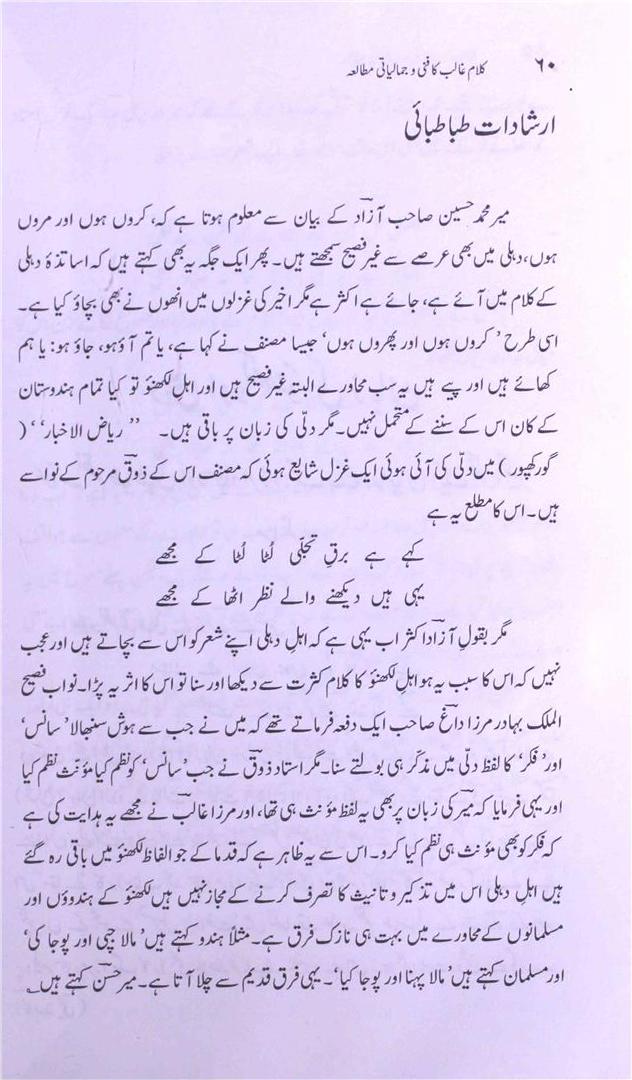 ۶۰ کلام غالب کا فنی و جمالیاتی مطالعہ
ارشادات طباطبائی
میر محمد حسین صاحب آزاد کے بیان سے معلوم ہوتا ہے کہ، کروں ہوں اور مروں
ہوں، دہلی میں بھی عرصے سے غیر فصیح سمجھتے ہیں۔ پھر ایک جگہ یہ بھی کہتے ہیں کہ اساتذۂ دہلی
کے کلام میں آئے ہے، جائے ہے اکثر ہے مگر اخیر کی غزلوں میں انھوں نے بھی بچاؤ کیا ہے۔
اسی طرح ’کروں ہوں اور پھروں ہوں‘ جیسا مصنف نے کہا ہے، یا تم آؤ ہو، جاؤ ہو: یا ہم
کھائے ہیں اور پیے ہیں یہ سب محاورے البتہ غیر فصیح ہیں اور اہلِ لکھنؤ تو کیا تمام ہندوستان
کے کان اس کے سننے کے متحمل نہیں۔ مگر دلّی کی زبان پر باقی ہیں۔ ’’ریاض الاخبار‘‘ (
گورکھپور) میں دلّی کی آئی ہوئی ایک غزل شایع ہوئی کہ مصنف اس کے ذوق مرحوم کے نواسے
ہیں۔ اس کا مطلع یہ ہے
کہے ہے برقِ تجلّی لُٹا لُٹا کے مجھے
یہی ہیں دیکھنے والے نظر اٹھا کے مجھے
مگر بقولِ آزاد اکثر اب یہی ہے کہ اہلِ دہلی اپنے شعر کو اس سے بچاتے ہیں اور عجب
نہیں کہ اس کا سبب یہ ہو اہلِ لکھنؤ کا کلام کثرت سے دیکھا اور سنا تو اس کا اثر یہ پڑا۔ نواب فصیح
الملک بہادر مرزا داغ صاحب ایک دفعہ فرماتے تھے کہ میں نے جب سے ہوش سنبھالا ’سانس‘
اور ’فکر‘ کا لفظ دلّی میں مذکّر ہی بولتے سنا۔ مگر استاد ذوق نے جب ’سانس‘ کو نظم کیا مؤنّث نظم کیا
اور یہی فرمایا کہ میر کی زبان پر بھی یہ لفظ مؤنث ہی تھا، اور مرزا غالب نے مجھے یہ ہدایت کی ہے
کہ فکر کو بھی مؤنث ہی نظم کیا کرو۔ اس سے یہ ظاہر ہے کہ قدما کے جو الفاظ لکھنؤ میں باقی رہ گئے
ہیں اہلِ دہلی اس میں تذکیر و تانیث کا تصرف کرنے کے مجاز نہیں ہیں لکھنؤ کے ہندوؤں اور
مسلمانوں کے محاورے میں بہت ہی نازک فرق ہے۔ مثلاً ہندو کہتے ہیں ’مالا جپی اور پوجا کی‘
اور مسلمان کہتے ہیں ’مالا پہنا اور پوجا کیا‘۔ یہی فرق قدیم سے چلا آتا ہے۔ میر حسن کہتے ہیں۔